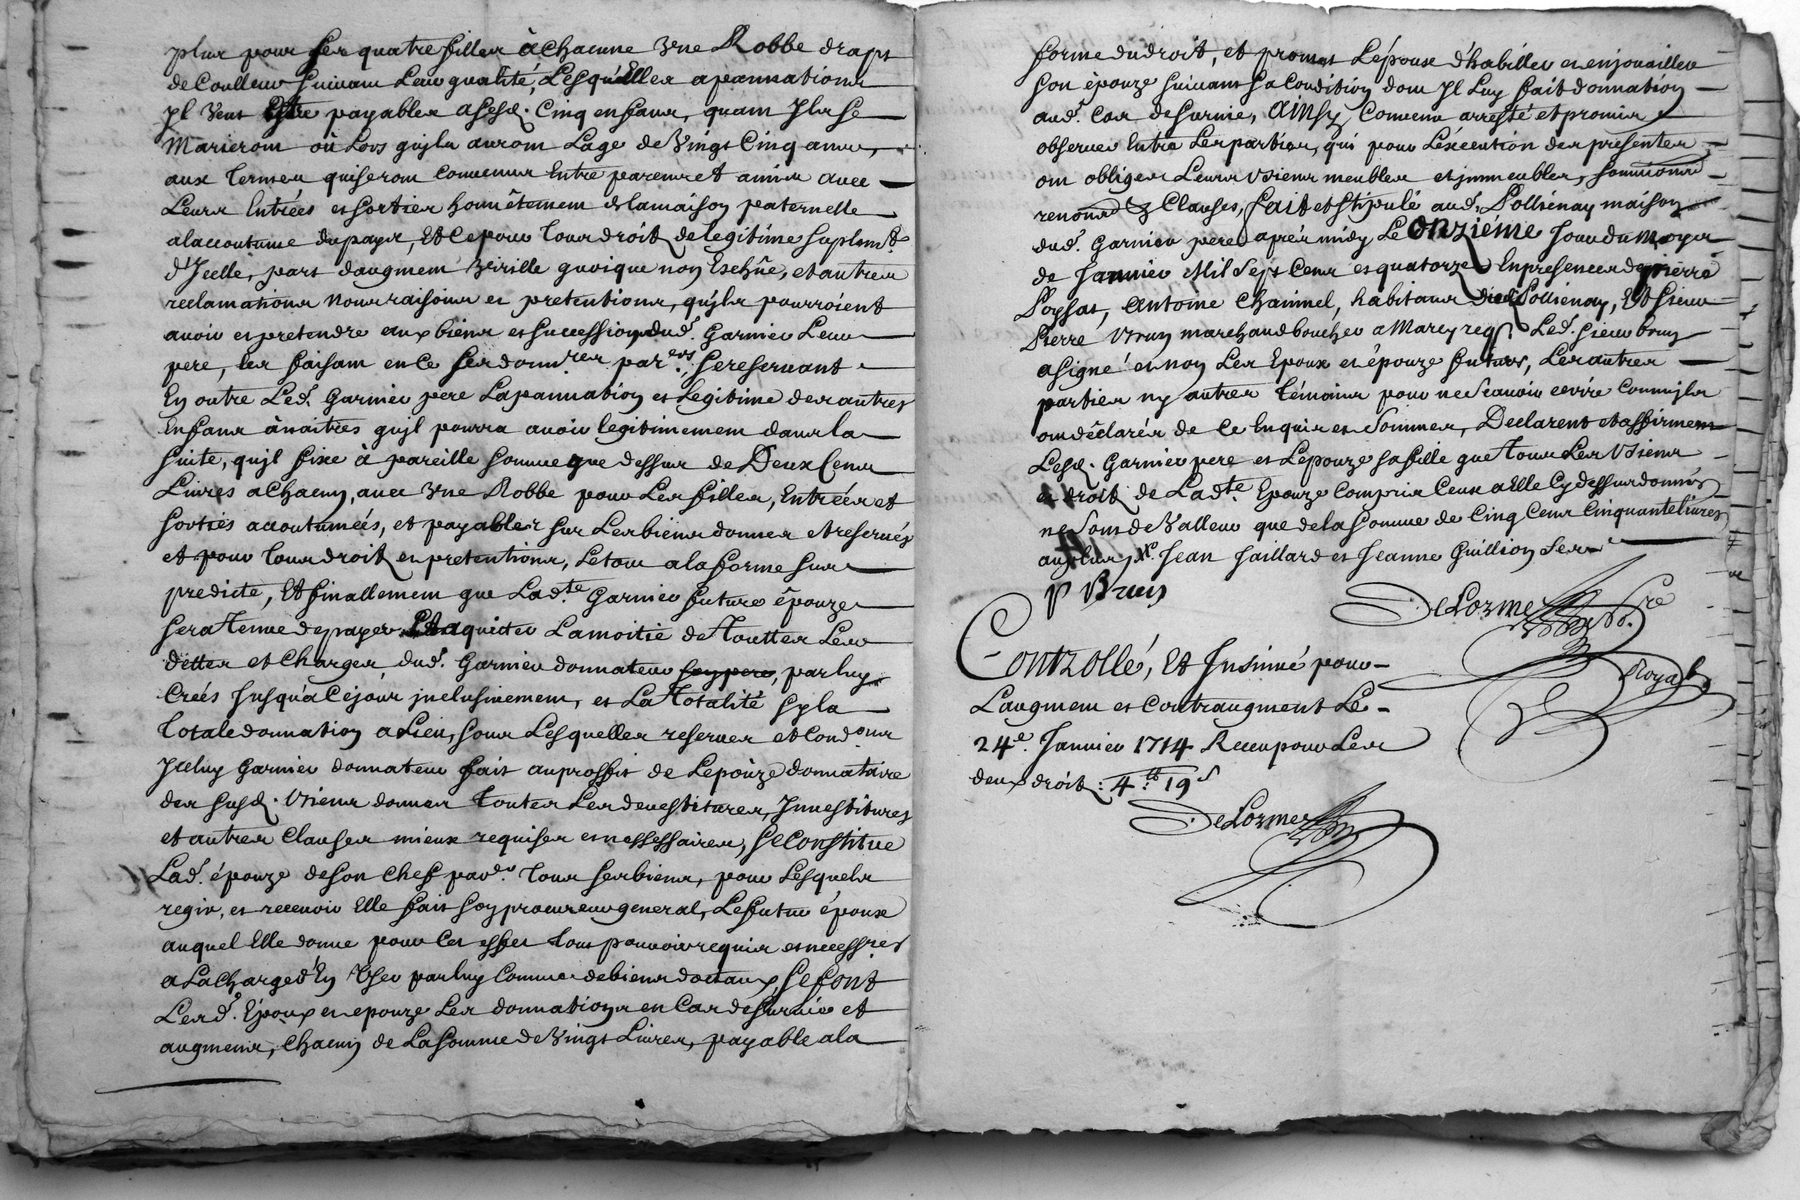 plus pour ses quatre filles à Chacune Vne Robbe draps
de Coulleur suivant Leur qualité, Lesquelles apannations
Jl Veut Estre payables a sesd. Cinq enfans, quant Jls se
Marieront ou Lors qu'jls auront L'age de Vingt Cinq années,
aux termes qui seront Convenus Entre parents et amis avec
Leurs Entrées et sorties honnêtement de la maison paternelle
a la coutume du pays, Et Ce pour tous droit de legitime suplemt.
d'Jcelle, part daugment Virille quoique non Escheüe, et autres
reclamations Noms raisons et pretentions, qu'jls pourroient
avoir et pretendre aux biens et succession dud. Garnier Leur
pere, Les faisant en Ce ses donnres. par ers. se reservant
En outre Led. Garnier pere Lapannation et Legitime des autres
Enfans à naitres qujl pourra avoir legitimement dans la
suite, qujl fixe à pareille somme que dessus de Deux Cens
Livres a Chacun, avec Vne Robbe pour Les filles, Entrées et
sorties accoutumées, et payables sur Les biens donnes et reservés
et pour tous droit et pretentions, Le tout a la forme sus
predicte, Et finallement que Ladte. Garnier future épouze
sera tenue de payer Et aquitter La moitié de toutes Les
dettes et Charges dud. Garnier donnateur son pere, par luy
Creés Jusqu'a Ce jour jnclusivement, et La totalité sy la
totale donnation a Lieu, sous Lesquelles reserves et Condons
Jceluy Garnier donnateur fait au proffit de Lepouze donnataire
des susd. Vsiens donnes toutes Les devestitures, Jnvestitures
et autres Clauses mieux requises et nessessaires, se Constitue
Lad. épouze de son Chef par ds. tous ses biens, pour Lesquels
regir, et recevoir Elle fait son procureur general, Le futur époux
auquel Elle donne pour Cet effet tout pouvoir requis et necessres
a La Charge d'En Vser par luy Comme de biens dotaux, se font
Lesd. Epoux et epouze Les donnations en Cas de survie et
augments, Chacun de La somme de Vingt Livres, payable a la
forme du droit, et promet L'époux d'habiller et enjouailler
son épouze suivant sa Condition dont Jl Luy fait donnation
aud. Cas de survie, Ainsy Convenu arresté et promis
observer Entre Les parties, qui pour L'éxécution des présentes
ont obliges Leurs Vsiens meubles et jmmeubles, soumissions
renond & Clauses, fait et stipulé aud. Pollienay maison
dud. Garnier pere aprés midy Le Onziéme Jour du Moys
de Janvier Mil Sept Cens et quatorze En presences de pierre
Antoine Chainnel, habitans dud. Pollienay, Et sieur
Pierre Vrun marchand boucher a Marcy reqs. Led. sieur brun
a signé et non Les Epoux et épouze futurs, Les autres
parties ny autres témoins pour ne scavoir ecrire Comm'jls
ont déclarés de Ce Enquis et Sommes, Declarent et affirment
Lesd. Garnier pere et Lepouze sa fille que tous Les Vsiens
et droit de Ladte. Epouze Compris Ceux a Elle Cy dessus donnés
ne sont de Valleur que de la somme de Cinq Cens Cinquante livres
au plus Jean Jaillard et Jeanne Guillion
P Brun
DeLorme
Royal
Controllé, Et Jnsinué pour
Laugment et Contraugment Le
24e. Janvier 1714 Receu pour Les
deux droit: 4tt 19s
DeLorme